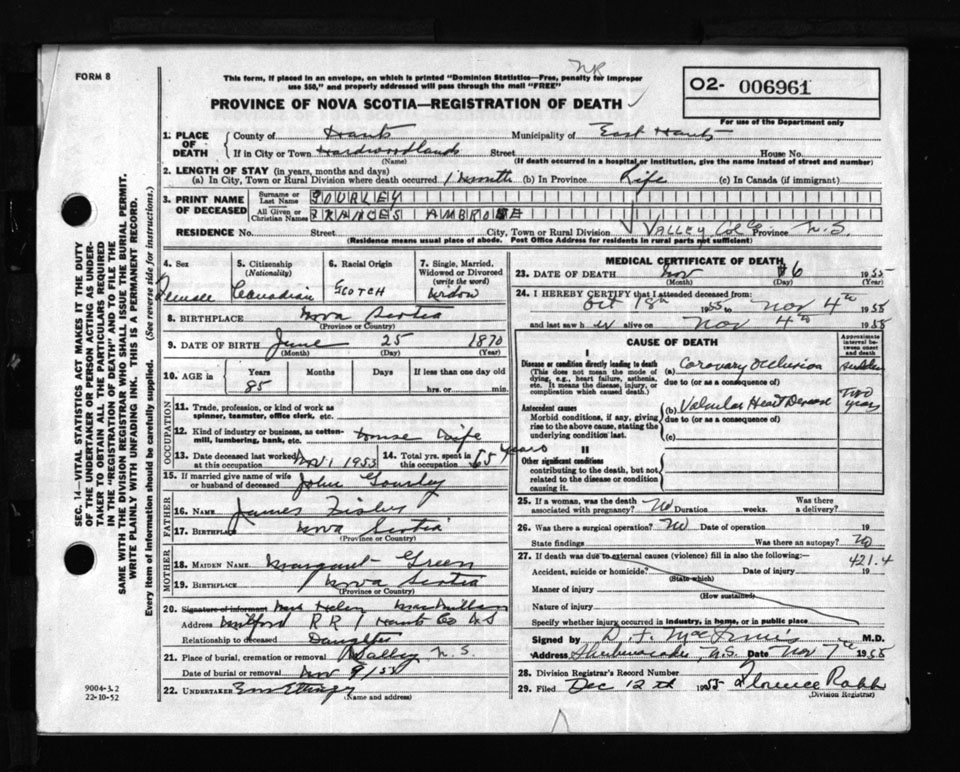 FORM 8
NR
This form, if placed in an envelope, on which is printed "Dominion Statistics—Free, penalty for improper
use $50," and properly addressed will pass through the mail "FREE"
PROVINCE OF NOVA SCOTIA—REGISTRATION OF DEATH
O2- 006961
For use of the Department only
1. PLACE OF DEATH
County of Hants Municipality of East Hants
If in City or Town Hardwoodlands Street House No.
(Name) (If death occurred in a hospital or institution, give the name instead of street and number)
2. LENGTH OF STAY (in years, months and days)
(a) In City, Town or Rural Division where death occurred 1 month (b) In Province Life (c) In Canada (if immigrant)
3. PRINT NAME OF DECEASED
Surname or Last Name GOURLEY
All Given or Christian Names FRANCES AMBROSE
RESIDENCE No. Street City, Town or Rural Division VALLEY Col Co Province N.S.
(Residence means usual place of abode. Post Office Address for residents in rural parts not sufficient)
4. Sex Female
5. Citizenship (Nationality) Canadian
6. Racial Origin SCOTCH
7. Single, Married, Widowed or Divorced (write the word) Widow
8. BIRTHPLACE Nova Scotia
(Province or Country)
9. DATE OF BIRTH June 25 1870
(Month) (Day) (Year)
10. AGE in Years Months Days If less than one day old
85 hrs. or min.
OCCUPATION
11. Trade, profession, or kind of work as spinner, teamster, office clerk, etc.
12. Kind of industry or business, as cotton-mill, lumbering, bank, etc. House Wife
13. Date deceased last worked at this occupation Nov 1 1953
14. Total yrs. spent in this occupation 65 years
15. If married give name of wife or husband of deceased John Gourley
FATHER
16. NAME James
17. BIRTHPLACE Nova Scotia
(Province or Country)
MOTHER
18. MAIDEN NAME Margaret Green
19. BIRTHPLACE Nova Scotia
(Province or Country)
20. Signature of informant Helen MacMillan
Address Milford R R 1 Hants Co N S
Relationship to deceased Daughter
21. Place of burial, cremation or removal Valley N.S.
Date of burial or removal Nov 9/55
22. UNDERTAKER Ettinger
(Name and address)
MEDICAL CERTIFICATE OF DEATH
23. DATE OF DEATH Nov 6 1955
(Month) (Day) (Year)
24. I HEREBY CERTIFY that I attended deceased from
Oct 18th 1955 to Nov 4th 1955
and last saw h er alive on Nov 4th 1955
CAUSE OF DEATH
Approximate interval between onset and death
I
Disease or condition directly leading to death
(This does not mean the mode of dying, e.g., heart failure, asthenia, etc. It means the disease, injury, or complication which caused death.)
(a) Coronary Occlusion Sudden
due to (or as a consequence of)
Antecedent causes
Morbid conditions, if any, giving rise to the above cause, stating the underlying condition last.
(b) Valvular Heart Disease Two years
due to (or as a consequence of)
(c)
II
Other significant conditions
contributing to the death, but not related to the disease or condition causing it.
25. If a woman, was the death associated with pregnancy? No Duration weeks. Was there a delivery?
26. Was there a surgical operation? No Date of operation 19
State findings Was there an autopsy? No
27. If death was due to external causes (violence) fill in also the following:— 421.4
Accident, suicide or homicide? Date of injury 19
(State which)
Manner of injury
(How sustained)
Nature of injury
Specify whether injury occurred in industry, in home, or in public place
Signed by D. F. MacInnis M.D.
Address Shubenacadie, N.S. Date Nov 7th 1955
28. Division Registrar's Record Number
29. Filed Dec 12th 1955 Florence Robb
(Division Registrar)
SEC. 14—VITAL STATISTICS ACT MAKES IT THE DUTY
OF THE UNDERTAKER OR PERSON ACTING AS UNDER-
TAKER TO OBTAIN ALL THE PARTICULARS REQUIRED
IN THE "REGISTRATION OF DEATH" AND TO FILE THE
SAME WITH THE DIVISION REGISTRAR WHO SHALL ISSUE THE BURIAL PERMIT.
WRITE PLAINLY WITH UNFADING INK. THIS IS A PERMANENT RECORD.
Every item of information should be carefully supplied. (See reverse side for instructions.)
9004-3.2
22-10-52